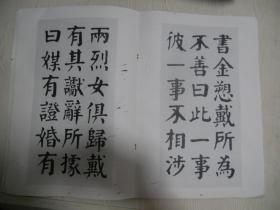 書金愬戴所為
不善曰此一事
彼一事不相涉
兩烈女俱歸戴
有其讞辭所據
曰媒有證婚有